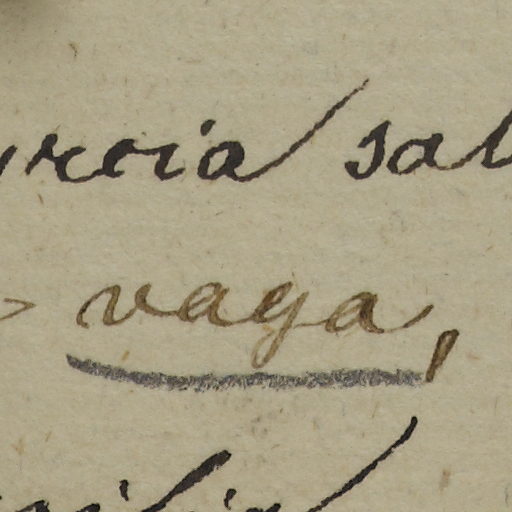 yrcia sal
vaga,